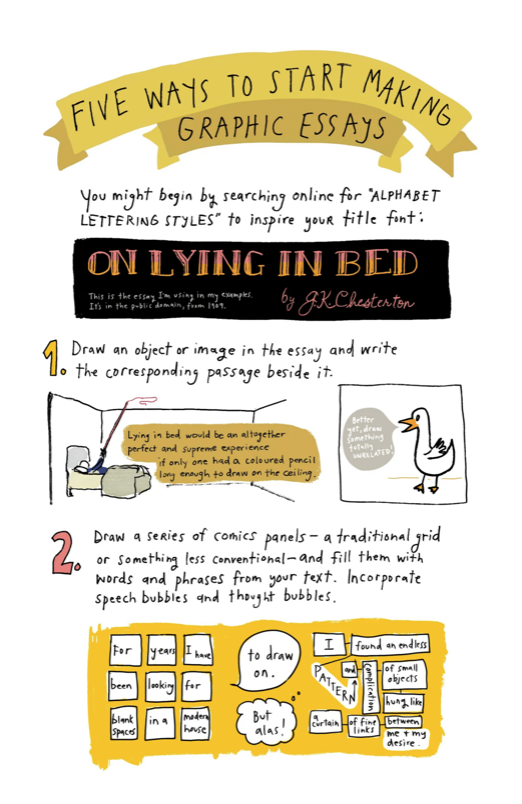 FIVE WAYS TO START MAKING
GRAPHIC ESSAYS
You might begin by searching online for "ALPHABET
LETTERING STYLES" to inspire your title font:
ON LYING IN BED
This is the essay I'm using in my examples.
It's in the public domain, from 1909.
by G.K. Chesterton
1. Draw an object or image in the essay and write
the corresponding passage beside it.
Lying in bed would be an altogether
perfect and supreme experience
if only one had a coloured pencil
long enough to draw on the ceiling.
Better
yet, draw
something
totally
UNRELATED!
2. Draw a series of comics panels – a traditional grid
or something less conventional – and fill them with
words and phrases from your text. Incorporate
speech bubbles and thought bubbles.
For years I have
been looking for
blank spaces in a modern house
to draw
on.
But
alas!
I found an endless
PATTERN and complication of small objects
hung like
a curtain of fine links between
me + my
desire.